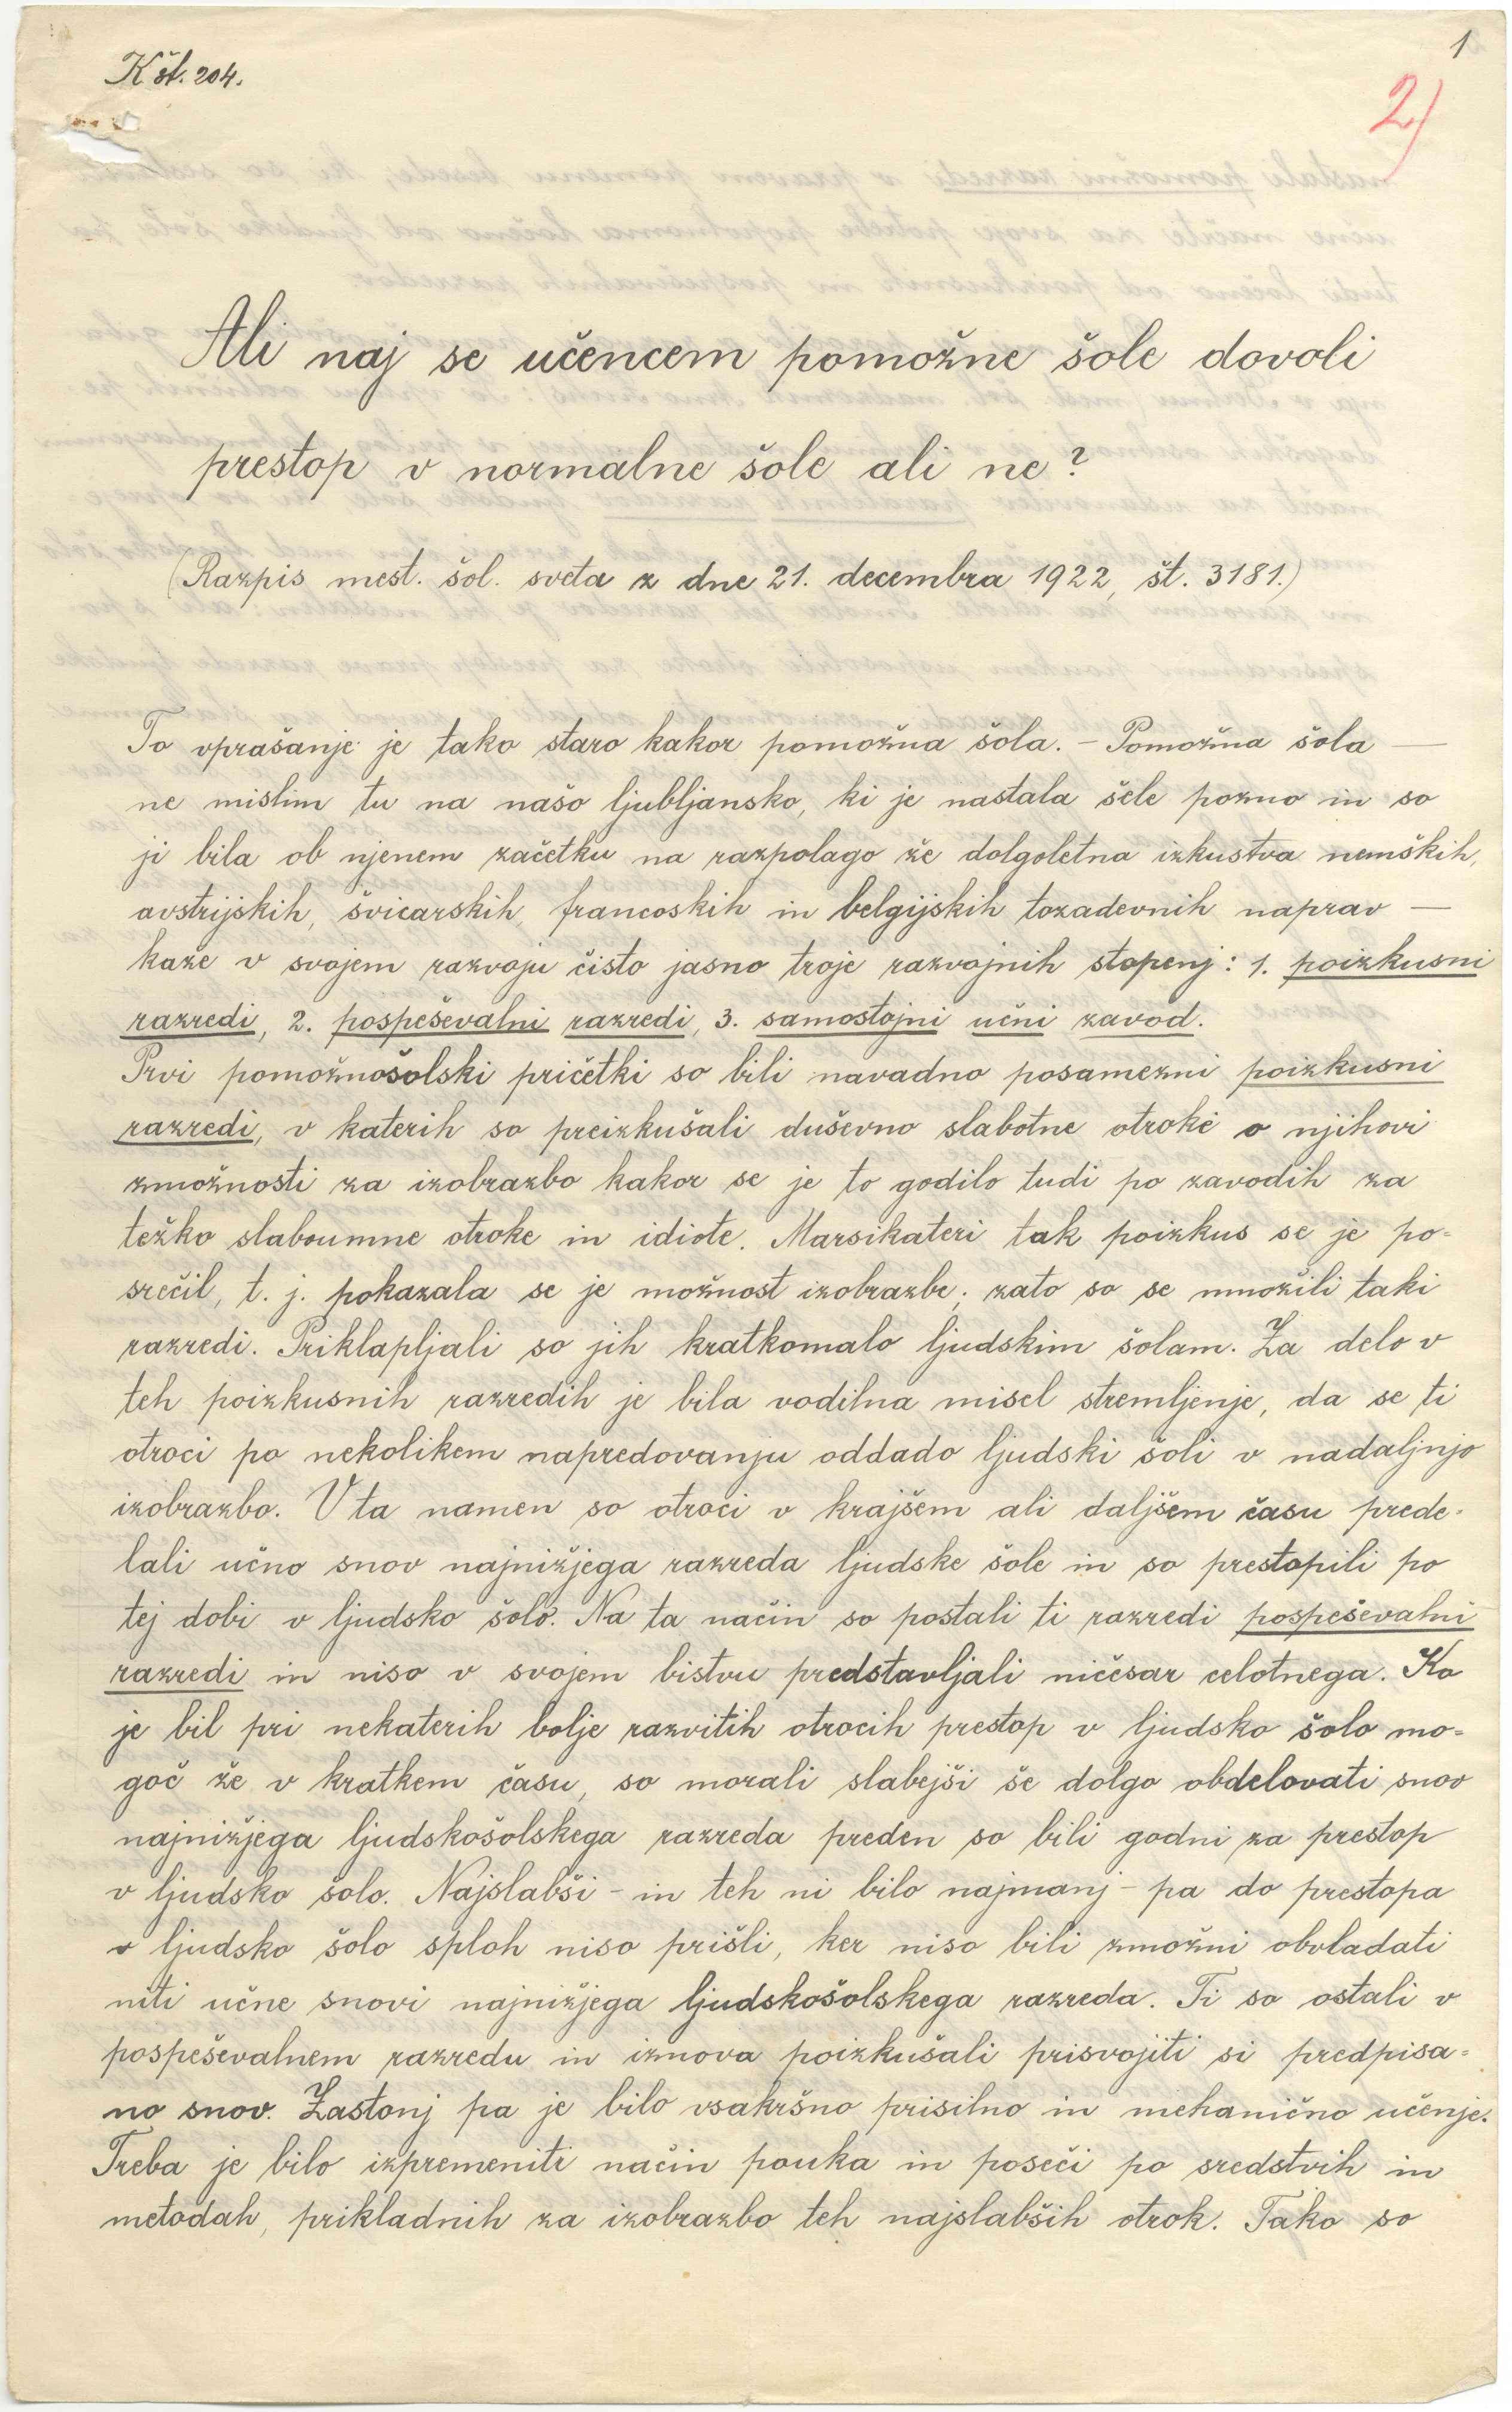 1
K št. 204.
2)
Ali naj se učencem pomožne šole dovoli
prestop v normalne šole ali ne?
(Razpis mest. šol. sveta z dne 21. decembra 1922, št. 3181.)
To vprašanje je tako staro kakor pomožna šola. – Pomožna šola —
ne mislim tu na našo ljubljansko, ki je nastala šele pozno in so
ji bila ob njenem začetku na razpolago že dolgoletna izkustva nemških,
avstrijskih, švicarskih, francoskih in belgijskih tozadevnih naprav —
kaže v svojem razvoju čisto jasno troje razvojnih stopenj: 1. poizkusni
razredi, 2. pospeševalni razredi, 3. samostojni učni zavod.
Prvi pomožnošolski pričetki so bili navadno posamezni poizkusni
razredi, v katerih so preizkušali duševno slabotne otroke o njihovi
zmožnosti za izobrazbo kakor se je to godilo tudi po zavodih za
težko slaboumne otroke in idiote. Marsikateri tak poizkus se je po=
srečil, t. j. pokazala se je možnost izobrazbe; zato so se množili taki
razredi. Priklapljali so jih kratkomalo ljudskim šolam. Za delo v
teh poizkusnih razredih je bila vodilna misel stremljenje, da se ti
otroci po nekolikem napredovanju oddado ljudski šoli v nadaljnjo
izobrazbo. V ta namen so otroci v krajšem ali daljšem času prede=
lali učno snov najnižjega razreda ljudske šole in so prestopili po
tej dobi v ljudsko šolo. Na ta način so postali ti razredi pospeševalni
razredi in niso v svojem bistvu predstavljali ničesar celotnega. Ko
je bil pri nekaterih bolje razvitih otrocih prestop v ljudsko šolo mo=
goč že v kratkem času, so morali slabejši še dolgo obdelovati snov
najnižjega ljudskošolskega razreda preden so bili godni za prestop
v ljudsko šolo. Najslabši – in teh ni bilo najmanj – pa do prestopa
v ljudsko šolo sploh niso prišli, ker niso bili zmožni obvladati
niti učne snovi najnižjega ljudskošolskega razreda. Ti so ostali v
pospeševalnem razredu in iznova poizkušali prisvojiti si predpisa=
no snov. Zastonj pa je bilo vsakršno prisilno in mehanično učenje.
Treba je bilo izpremeniti način pouka in poseči po sredstvih in
metodah, prikladnih za izobrazbo teh najslabših otrok. Tako so